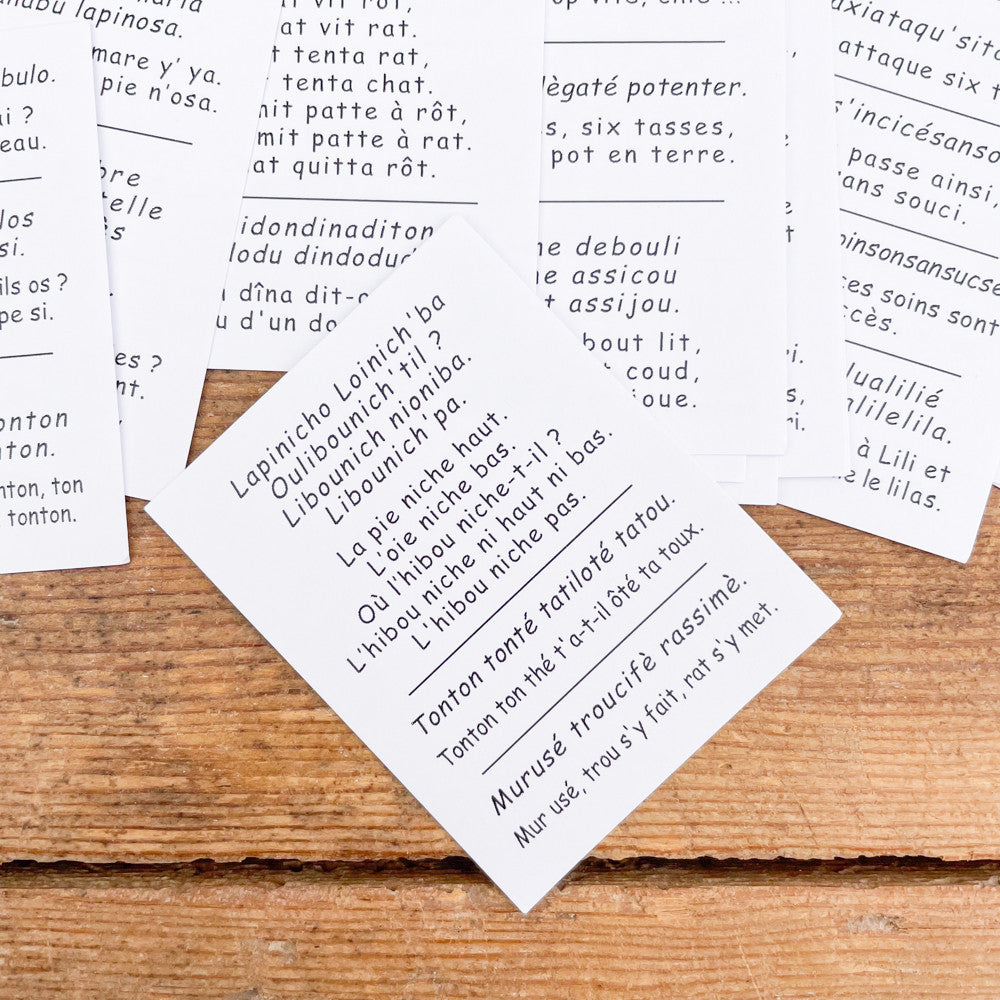 nabu lapinosa.
mare y' ya.
pie n'osa.
bulo.
ai ?
eau.
los
si.
ils os ?
pe si.
onton
nton.
nton, ton
tonton.
bre
telle
ès
es ?
nt.
at vit rat.
t tenta rat,
tenta chat.
mit patte à rôt,
mit patte à rat.
at quitta rôt.
idondinaditon
lodu dindodud
dîna dit-o
u d'un do
lègaté potenter.
s, six tasses,
pot en terre.
ne debouli
ne assicou
t assijou.
bout lit,
t coud,
joue.
axiataqu'sito
attaque six t
s'incicésanso
passe ainsi,
ans souci.
pinsonsansucse
ces soins sont
ccès.
lualilié
alilelila.
à Lili et
e le lilas.
Lapinicho Loinich'ba
Oulibounich'til ?
Libounich nioniba.
Libounich'pa.
La pie niche haut.
L'oie niche bas.
Où l'hibou niche-t-il ?
L'hibou niche ni haut ni bas.
L'hibou niche pas.
Tonton tonté tatiloté tatou.
Tonton ton thé t'a-t-il ôté ta toux.
Murusé troucifè rassimè.
Mur usé, trou s'y fait, rat s'y met.